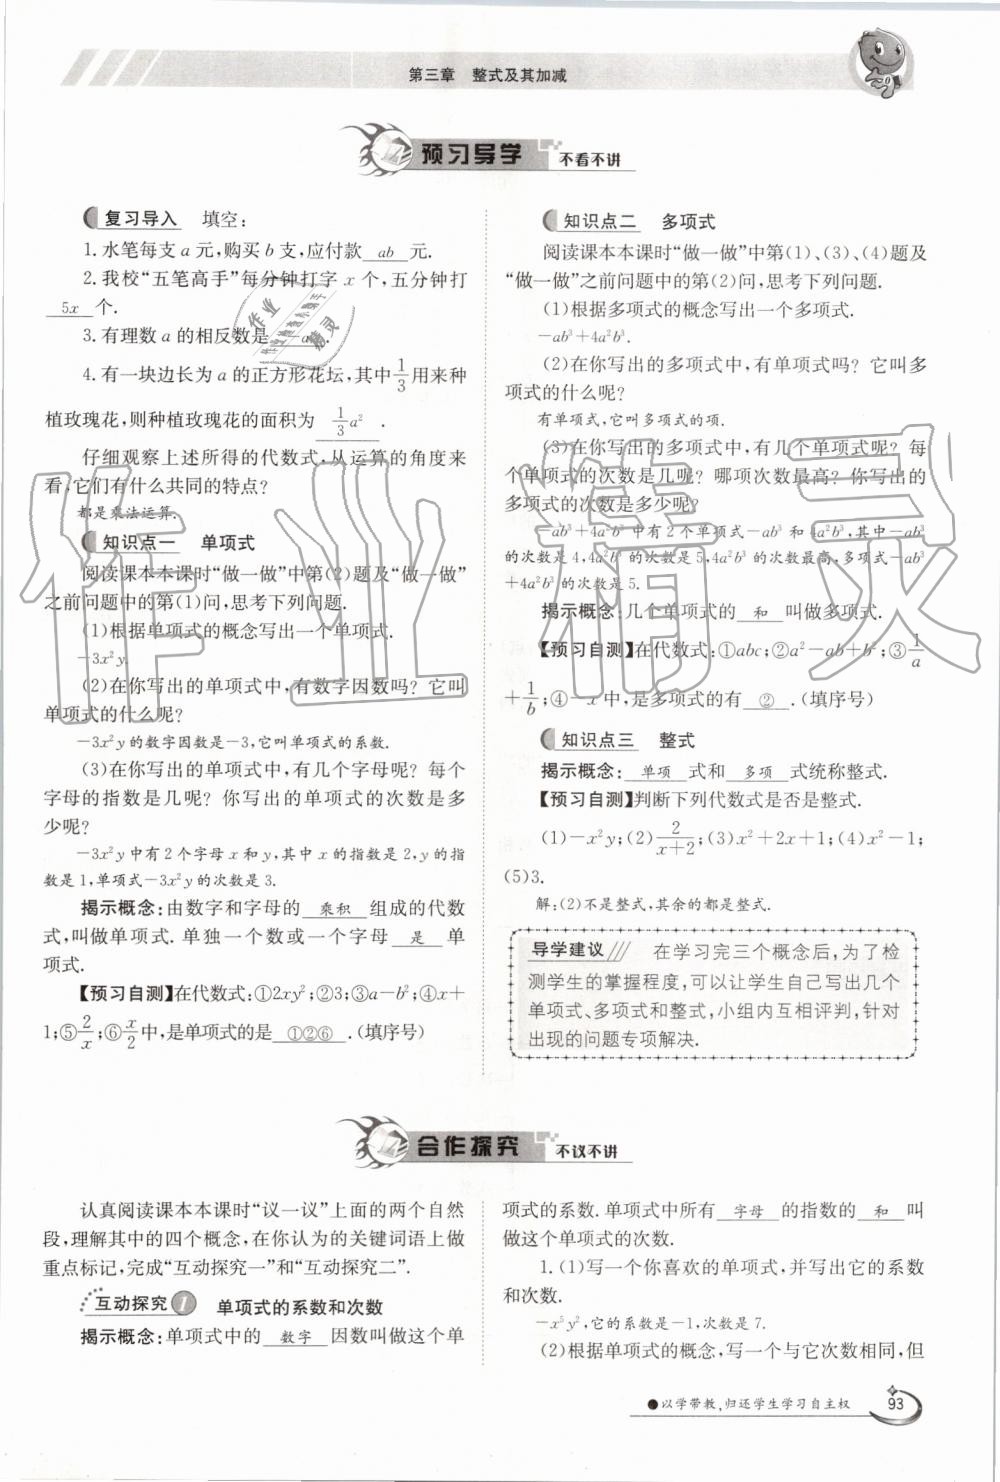 第三章 整式及其加减
预习导学 不看不讲
复习导入 填空:
1.水笔每支a元,购买b支,应付款 ab 元.
2.我校“五笔高手”每分钟打字x个,五分钟打
5x 个.
3.有理数a的相反数是 -a .
4.有一块边长为a的正方形花坛,其中1/3用来种
植玫瑰花,则种植玫瑰花的面积为 1/3a² .
仔细观察上述所得的代数式,从运算的角度来
看,它们有什么共同的特点?
都是乘法运算.
知识点一 单项式
阅读课本本课时“做一做”中第(2)题及“做一做”
之前问题中的第(1)问,思考下列问题.
(1)根据单项式的概念写出一个单项式.
-3x²y.
(2)在你写出的单项式中,有数字因数吗?它叫
单项式的什么呢?
-3x²y的数字因数是-3,它叫单项式的系数.
(3)在你写出的单项式中,有几个字母呢?每个
字母的指数是几呢?你写出的单项式的次数是多
少呢?
-3x²y中有2个字母x和y,其中x的指数是2,y的指
数是1,单项式-3x²y的次数是3.
揭示概念:由数字和字母的 乘积 组成的代数
式,叫做单项式.单独一个数或一个字母 是 单
项式.
【预习自测】在代数式:①2xy²;②3;③a-b²;④x+
1;⑤2/x;⑥x/2中,是单项式的是 ①②⑥ .(填序号)
知识点二 多项式
阅读课本本课时“做一做”中第(1)、(3)、(4)题及
“做一做”之前问题中的第(2)问,思考下列问题.
(1)根据多项式的概念写出一个多项式.
-ab³+4a²b³.
(2)在你写出的多项式中,有单项式吗?它叫多
项式的什么呢?
有单项式,它叫多项式的项.
(3)在你写出的多项式中,有几个单项式呢?每
个单项式的次数是几呢?哪项次数最高?你写出的
多项式的次数是多少呢?
-ab³+4a²b³中有2个单项式-ab³和4a²b³,其中-ab³
的次数是4,4a²b³的次数是5,4a²b³的次数最高,多项式-ab³
+4a²b³的次数是5.
揭示概念:几个单项式的 和 叫做多项式.
【预习自测】在代数式:①abc;②a²-ab+b²;③1/a
+1/b;④-x中,是多项式的有 ② .(填序号)
知识点三 整式
揭示概念: 单项 式和 多项 式统称整式.
【预习自测】判断下列代数式是否是整式.
(1)-x²y;(2)2/(x+2);(3)x²+2x+1;(4)x²-1;
(5)3.
解:(2)不是整式,其余的都是整式.
导学建议 在学习完三个概念后,为了检
测学生的掌握程度,可以让学生自己写出几个
单项式、多项式和整式,小组内互相评判,针对
出现的问题专项解决.
合作探究 不议不讲
认真阅读课本本课时“议一议”上面的两个自然
段,理解其中的四个概念,在你认为的关键词语上做
重点标记,完成“互动探究一”和“互动探究二”.
互动探究1 单项式的系数和次数
揭示概念:单项式中的 数字 因数叫做这个单
项式的系数.单项式中所有 字母 的指数的 和 叫
做这个单项式的次数.
1.(1)写一个你喜欢的单项式,并写出它的系数
和次数.
-x⁵y²,它的系数是-1,次数是7.
(2)根据单项式的概念,写一个与它次数相同,但
●以学带教,归还学生学习自主权
93
作业精灵